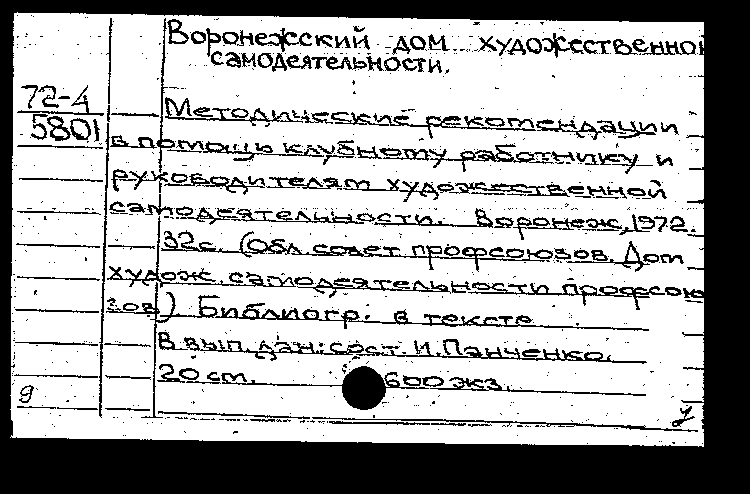 Воронежский дом художественной
самодеятельности.
72-4
5801
Методические рекомендации
в помощь клубному работнику и
руководителям художественной
самодеятельности. Воронеж, 1972.
32с. (Обл. совет профсоюзов. Дом
худож. самодеятельности профсою
зов) Библиогр. в тексте
В вып. дан.: сост. И. Панченко.
20 ст. 600 экз.